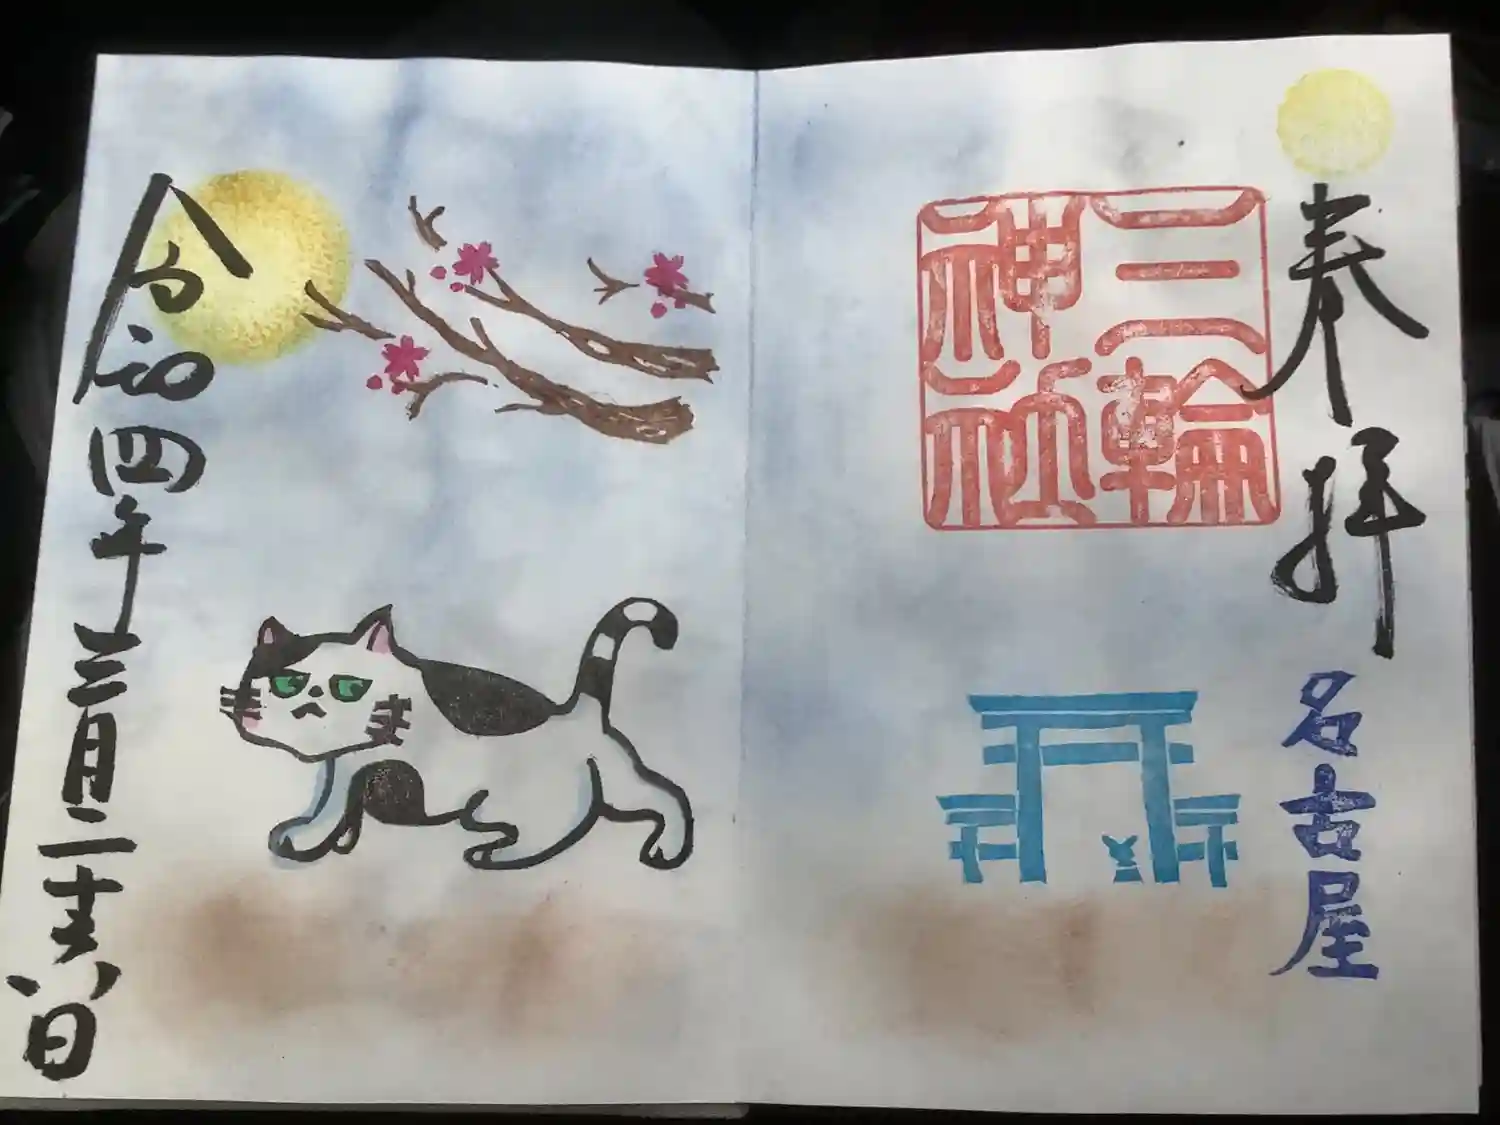 奉拝
名古屋
三輪
神社
令和四年三月二十八日